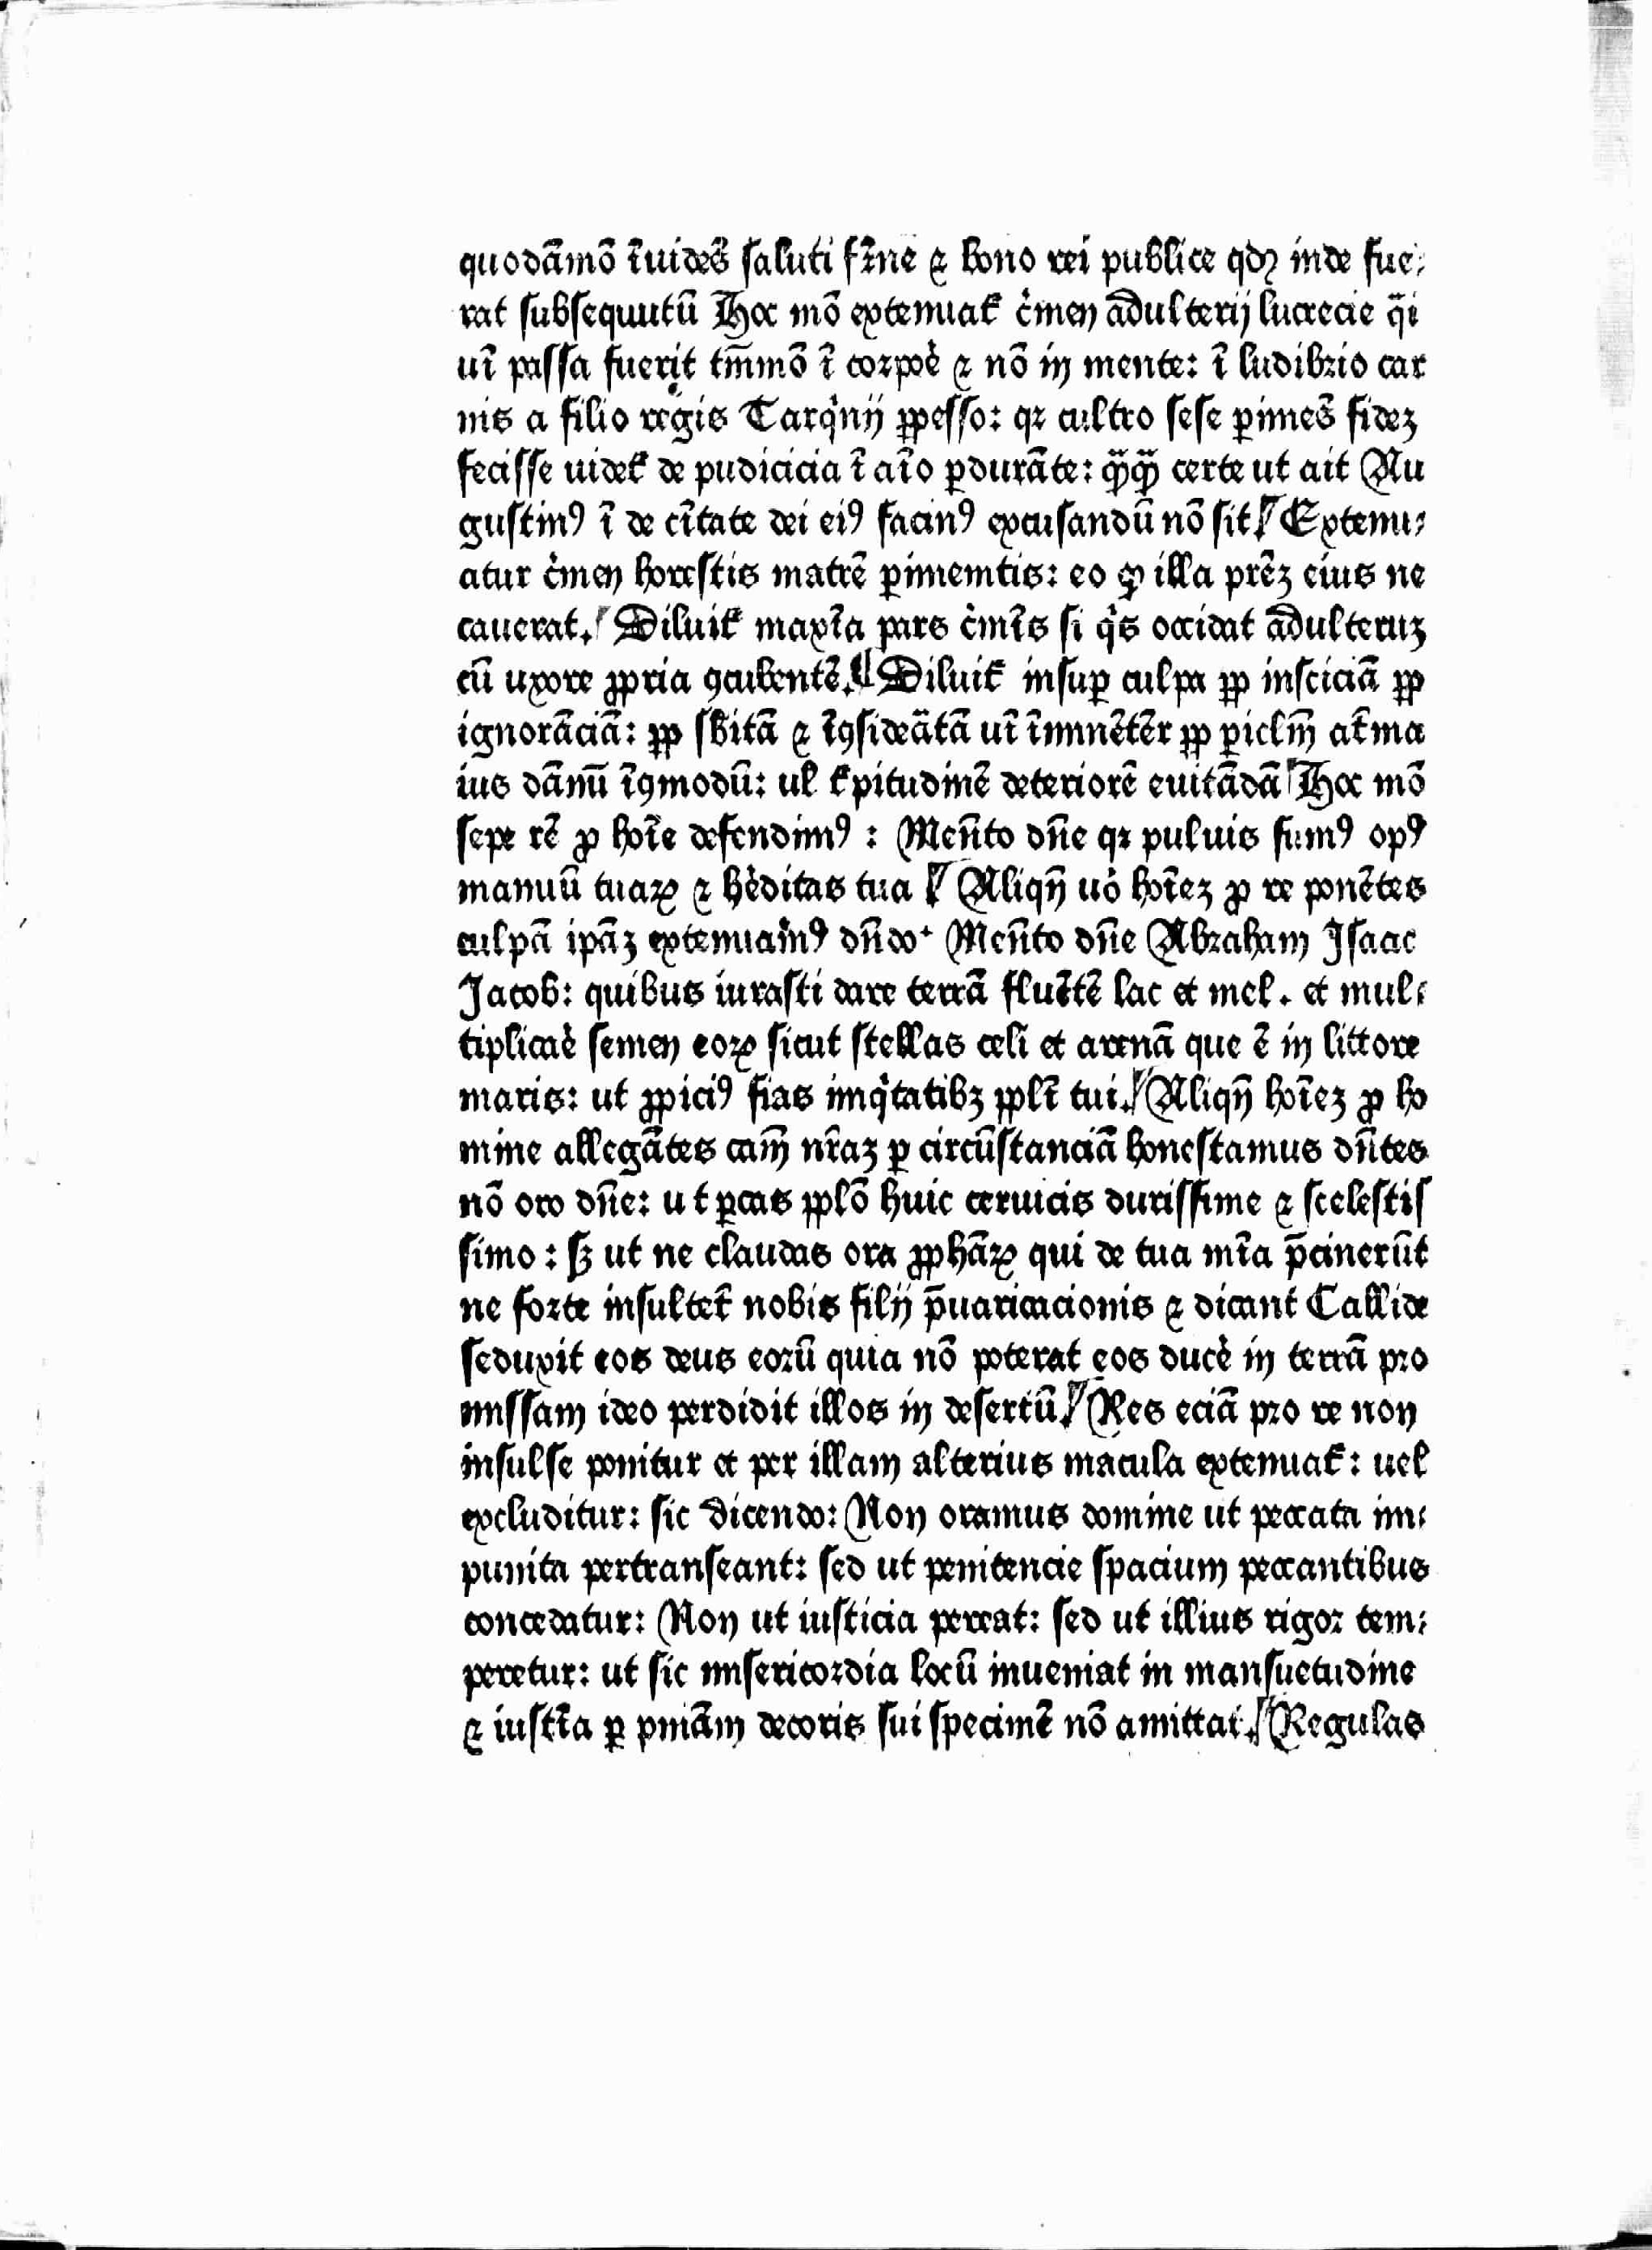 quodāmō īuidēs saluti frne ⁊ bono rei publice qdꝫ inde fue⸗
rat subsequutū Hoc mō extenuat᷑ cͥmen adulterij lucrecie qͣi
uī passa fuerit tm̄mō ī corpoe᷑ ⁊ nō in mente: ī ludibrio car
nis a filio regis Tarqͥnij ꝑpesso: qꝛ cultro sese ꝑimēs fidez
fecisse uidet᷑ de pudicicia ī aīo ꝑdurāte: qͣqͣ certe ut ait Au
gustinꝰ ī de cītate dei eiꝰ facinꝰ excusandū nō sit Extenu⸗
atur cͥmen horestis matrē ꝑimemtis: eo ꝙ illa prēz eius ne
cauerat. Diluit᷑ maxīa pars cͥmīs si qͥs occidat adulteruz
cū uxore ꝓpria ꝯcubentē. Diluit᷑ insuꝑ culpa ꝓp insciciā ꝓp
ignorāciā: ꝓp sbitā ⁊ īꝯsideātā uī īminētēr ꝓp ꝑiclm̄ at᷑ ma
ius dāmū īꝯmodū: ul t᷑pitudinē deteriorē euitādā Hoc mō
sepe rē ꝓ hoīe defendimꝰ : Men̄to dn̄e qꝛ puluis sumꝰ opꝰ
manuū tuaꝝ ⁊ he᷑ditas tua Aliqn̄ uo᷑ hoīez ꝓ re ponētes
culpā ipāz extenuamꝰ dn̄do. Men̄to dn̄e Abraham Isaac
Jacob: quibus iurasti dare terrā fluētē lac et mel. et mul⸗
tiplicae᷑ semen eoꝝ sicut stellas celi et arenā que ē in littore
maris: ut ꝓpiciꝰ fias iniqͥtatibꝫ ppłi tui. Aliqn̄ hoīez ꝓ ho
mine allegātes cam̄ nr̄az ꝑ circūstanciā honestamus dn̄tes
nō oro dn̄e: ut ꝑcas pplō huic ceruicis durissime ⁊ scelestis
simo: sꝫ ut ne claudas ora ꝓphāꝝ qui de tua mīa p̄cinerūt
ne forte insultet᷑ nobis filij p̄uaricacionis ⁊ dicant Callide
seduxit eos deus eorū quia nō poterat eos duce᷑ in terrā pro
missam ideo perdidit illos in desertū. Res eciā pro re non
insulse ponitur et per illam alterius macula extenuat᷑: uel
excluditur: sic dicendo: Non oramus domine ut peccata im⸗
punita pertranseant: sed ut penitencie spacium peccantibus
concedatur: Non ut iusticia pereat: sed ut illius rigor tem⸗
peretur: ut sic misericordia locū inueniat in mansuetudine
⁊ iustīa ꝑ pniām decoris sui specimē nō amittat. Regulas